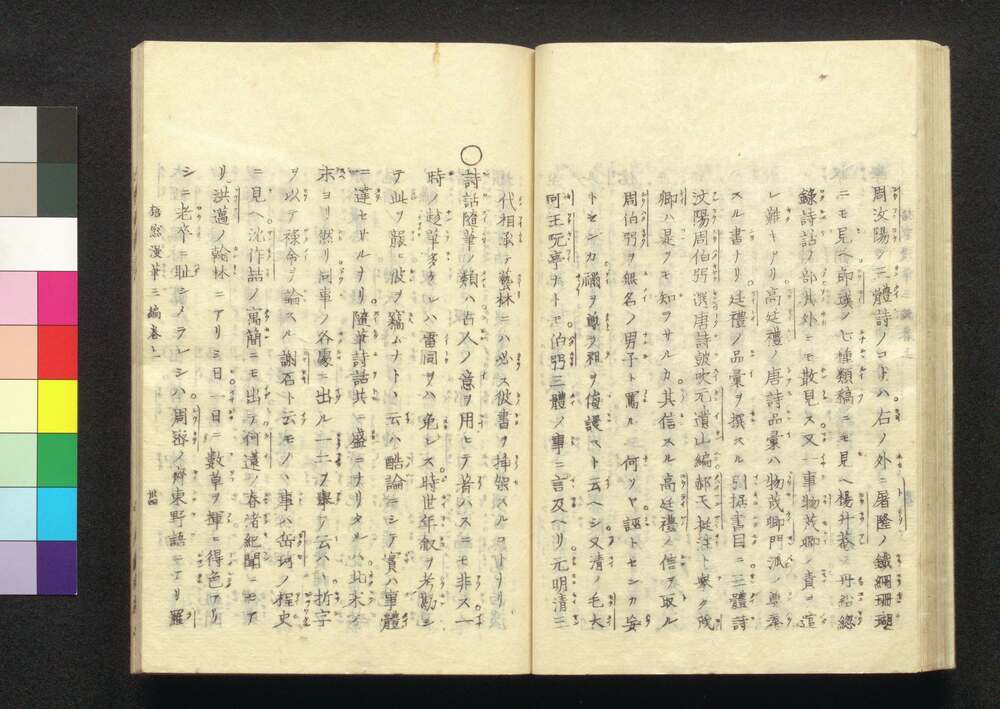 周汶陽ノ三體詩ノコトハ右ノ外ニ屠隆ノ鐵網珊瑚
ニモ見ヘ郎瑛ノ七種類稿ニモ見ヘ楊升菴ノ丹鉛總
錄詩話ノ部其外ニモ散見ス又一事物茂卿ノ責ヲ
レ難キアリ高廷禮ノ唐詩品彙ハ物茂卿門派ノ尊奉
スル書ナリ廷禮ノ品彙ヲ撰スル引據書目ニ三體詩
汶陽周伯弜選唐詩皷吹元遺山編郝天挺注ト擧ク茂
卿ハ是ヲモ知ヲサルカ其信スル高廷禮ノ信ヲ取ル
周伯弜ヲ無名ノ男子ト罵ル何ソヤ誣トセンカ妄
トセンカ禰ヲ尊ヲ祖ヲ侮謾スト云ヘシ又清ノ毛大
可王阮亭ナトモ伯弜三體ノ事ニ言及ヘリ元明清三
代相承テ藝林ニハ必ス彼書ヲ挿架スルコトナリ
〇詩話隨筆ノ類ハ古人ノ意ヲ用ヒテ著ハスニモ非ス一
時ノ走筆多ケレハ雷同ヲハ免レス時世年敘ヲ考勘シ
テ此ヲ襲ヒ彼ヲ竊ムナト丶云ハ酷論ニシテ實ハ事體
ニ達セサルナリ隨筆詩話共ニ盛ニナリタルハ北宋ノ
末ヨリ然リ同事ノ各處ニ出ル一二ヲ擧テ云ハ丶折字
ヲ以テ祿命ヲ論スル謝石ト云モノ丶事ハ岳珂ノ桯史
ニ見ヘ沈作喆ノ寓簡ニモ出テ何薳ノ春渚紀聞ニモア
リ洪邁ノ翰林ニアリシ日一日ニ數草ヲ揮ヒ得色アリ
シニ老卒ニ耻シメラレシハ周密ノ齊東野語ニアリ羅
漫筆三編卷上